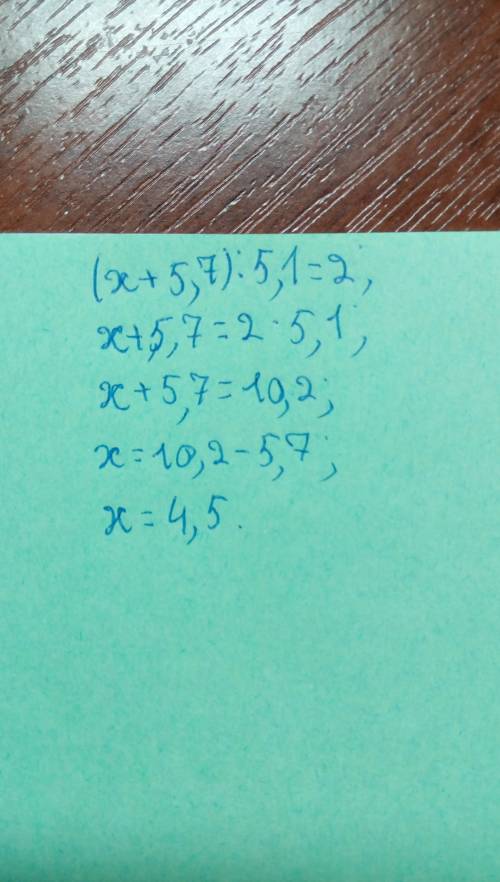 (x+5,7):5,1=2;
x+5,7=2·5,1;
x+5,7=10,2;
x=10,2-5,7;
x=4,5.